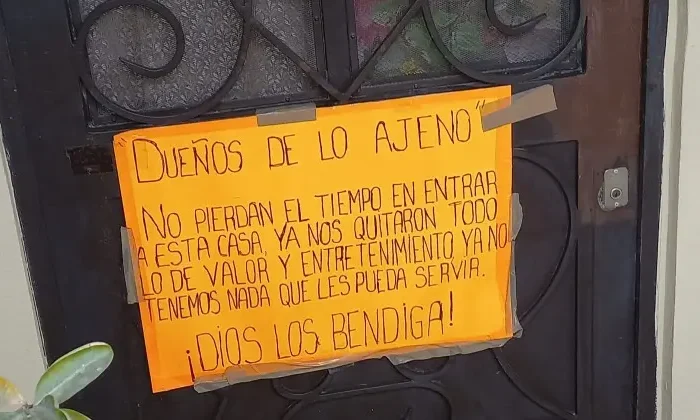 "DUEÑOS DE LO AJENO"
NO PIERDAN EL TIEMPO EN ENTRAR
A ESTA CASA, YA NOS QUITARON TODO
LO DE VALOR Y ENTRETENIMIENTO, YA NO
TENEMOS NADA QUE LES PUEDA SERVIR.
¡DIOS LOS BENDIGA!